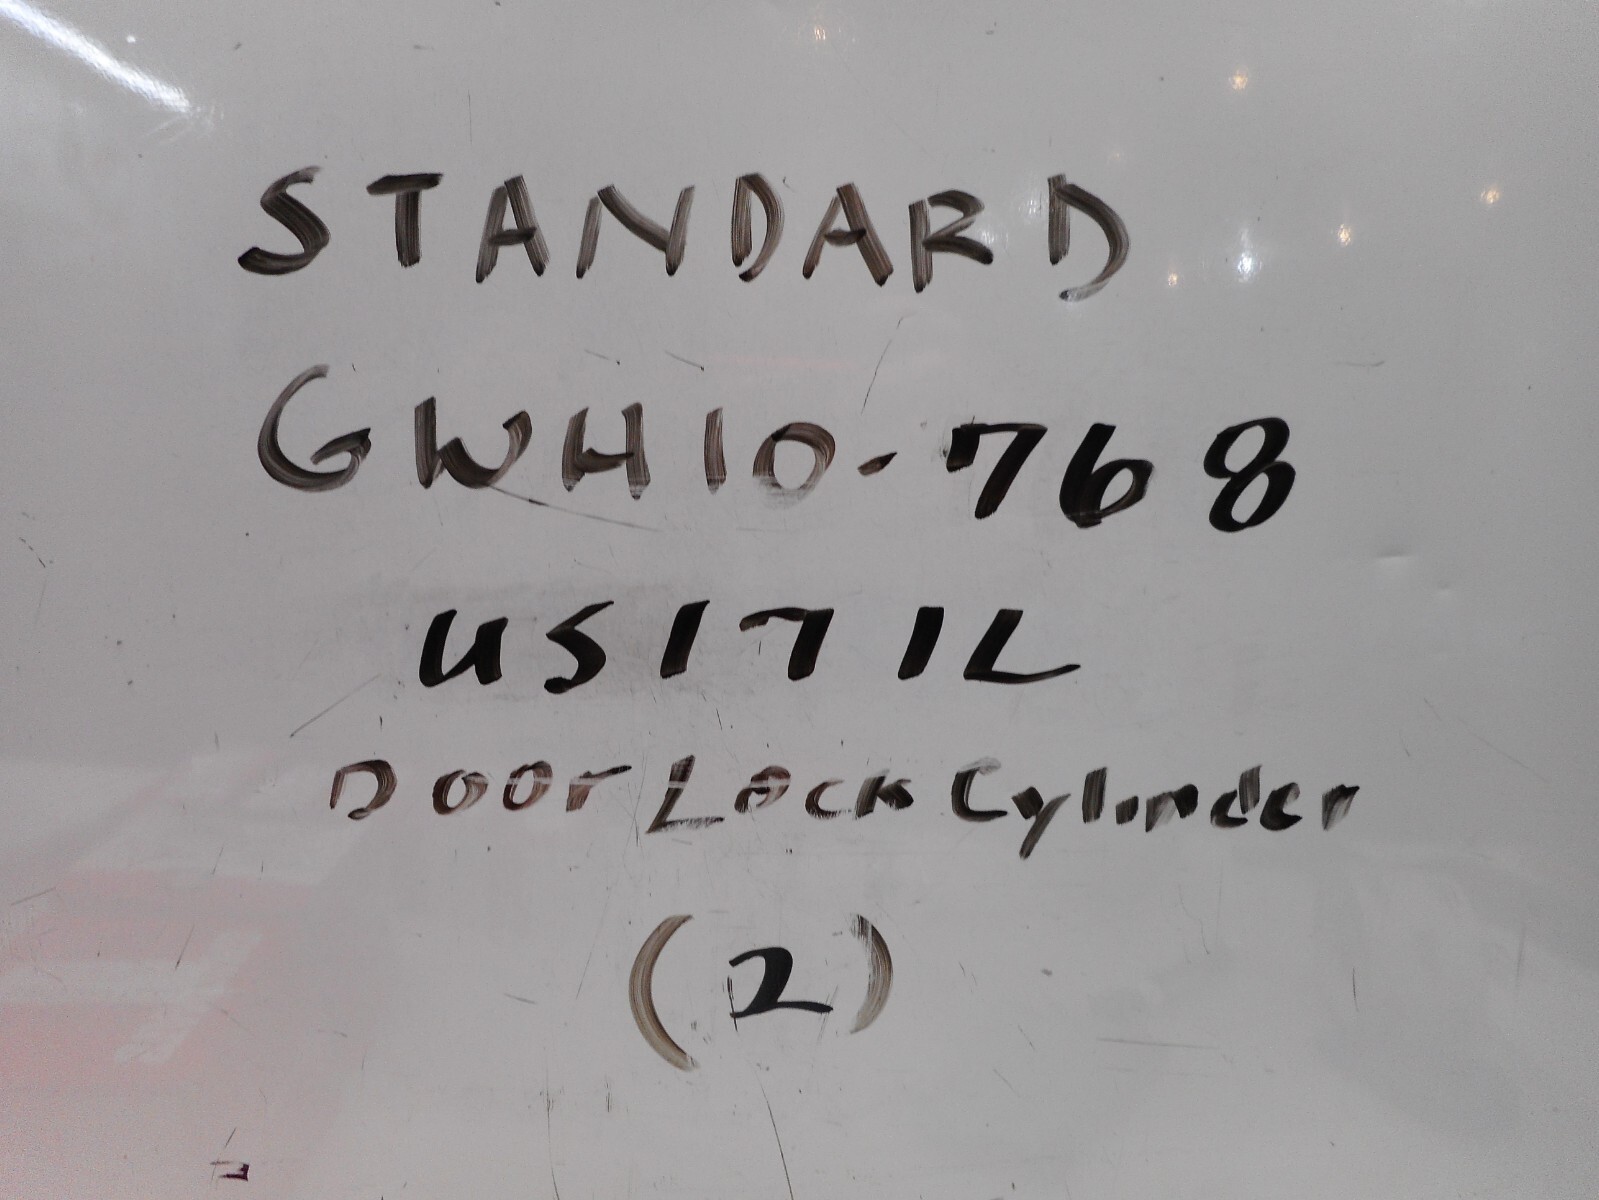 STANDARD
GWH10-768
US171L
Door Lock Cylinder
(2)